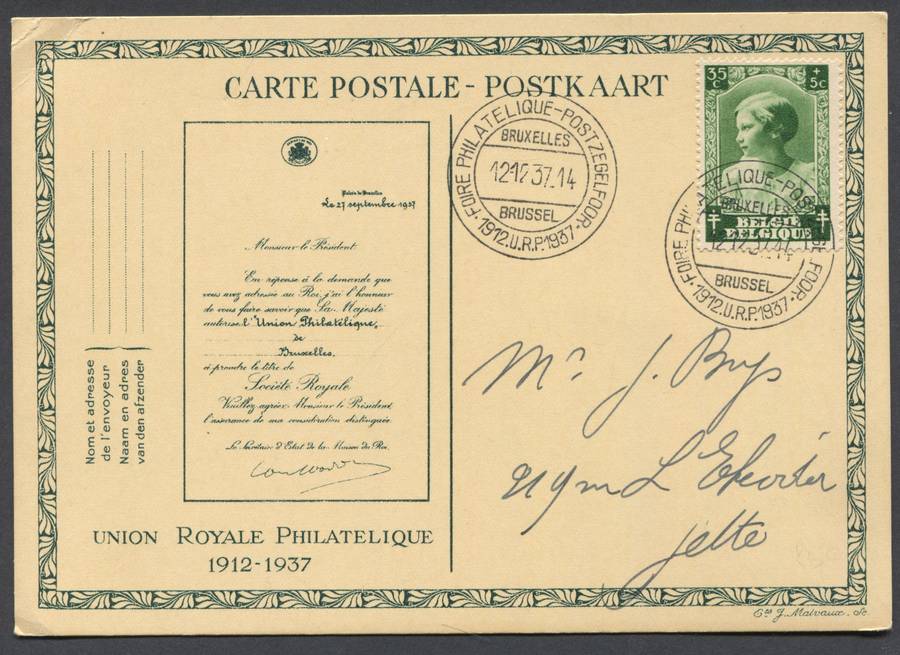 CARTE POSTALE - POSTKAART
35 c + 5c
BELGIE
BELGIQUE
FOIRE PHILATELIQUE-POSTZEGELFOOR
BRUXELLES
12 12 37.14
BRUSSEL
1912.U.R.P.1937
FOIRE PHILATELIQUE-POSTZEGELFOOR
BRUXELLES
12 12 37 14
BRUSSEL
1912.U.R.P.1937
Palais de Bruxelles
Le 27 septembre 1937
Monsieur le Président
En réponse à la demande que
vous avez adressée au Roi, j'ai l'honneur
de vous faire savoir que Sa Majesté
autorise l'Union Philatélique,
de
Bruxelles,
à prendre le titre de
Société Royale
Veuillez agréer, Monsieur le Président
l'assurance de ma considération distinguée
Le Secrétaire d'Etat de la Maison du Roi.
Nom et adresse
de l'envoyeur
Naam en adres
van den afzender
UNION ROYALE PHILATELIQUE
1912-1937
Mr J. Brys
Jette
Ets J. Malvaux. Sc.